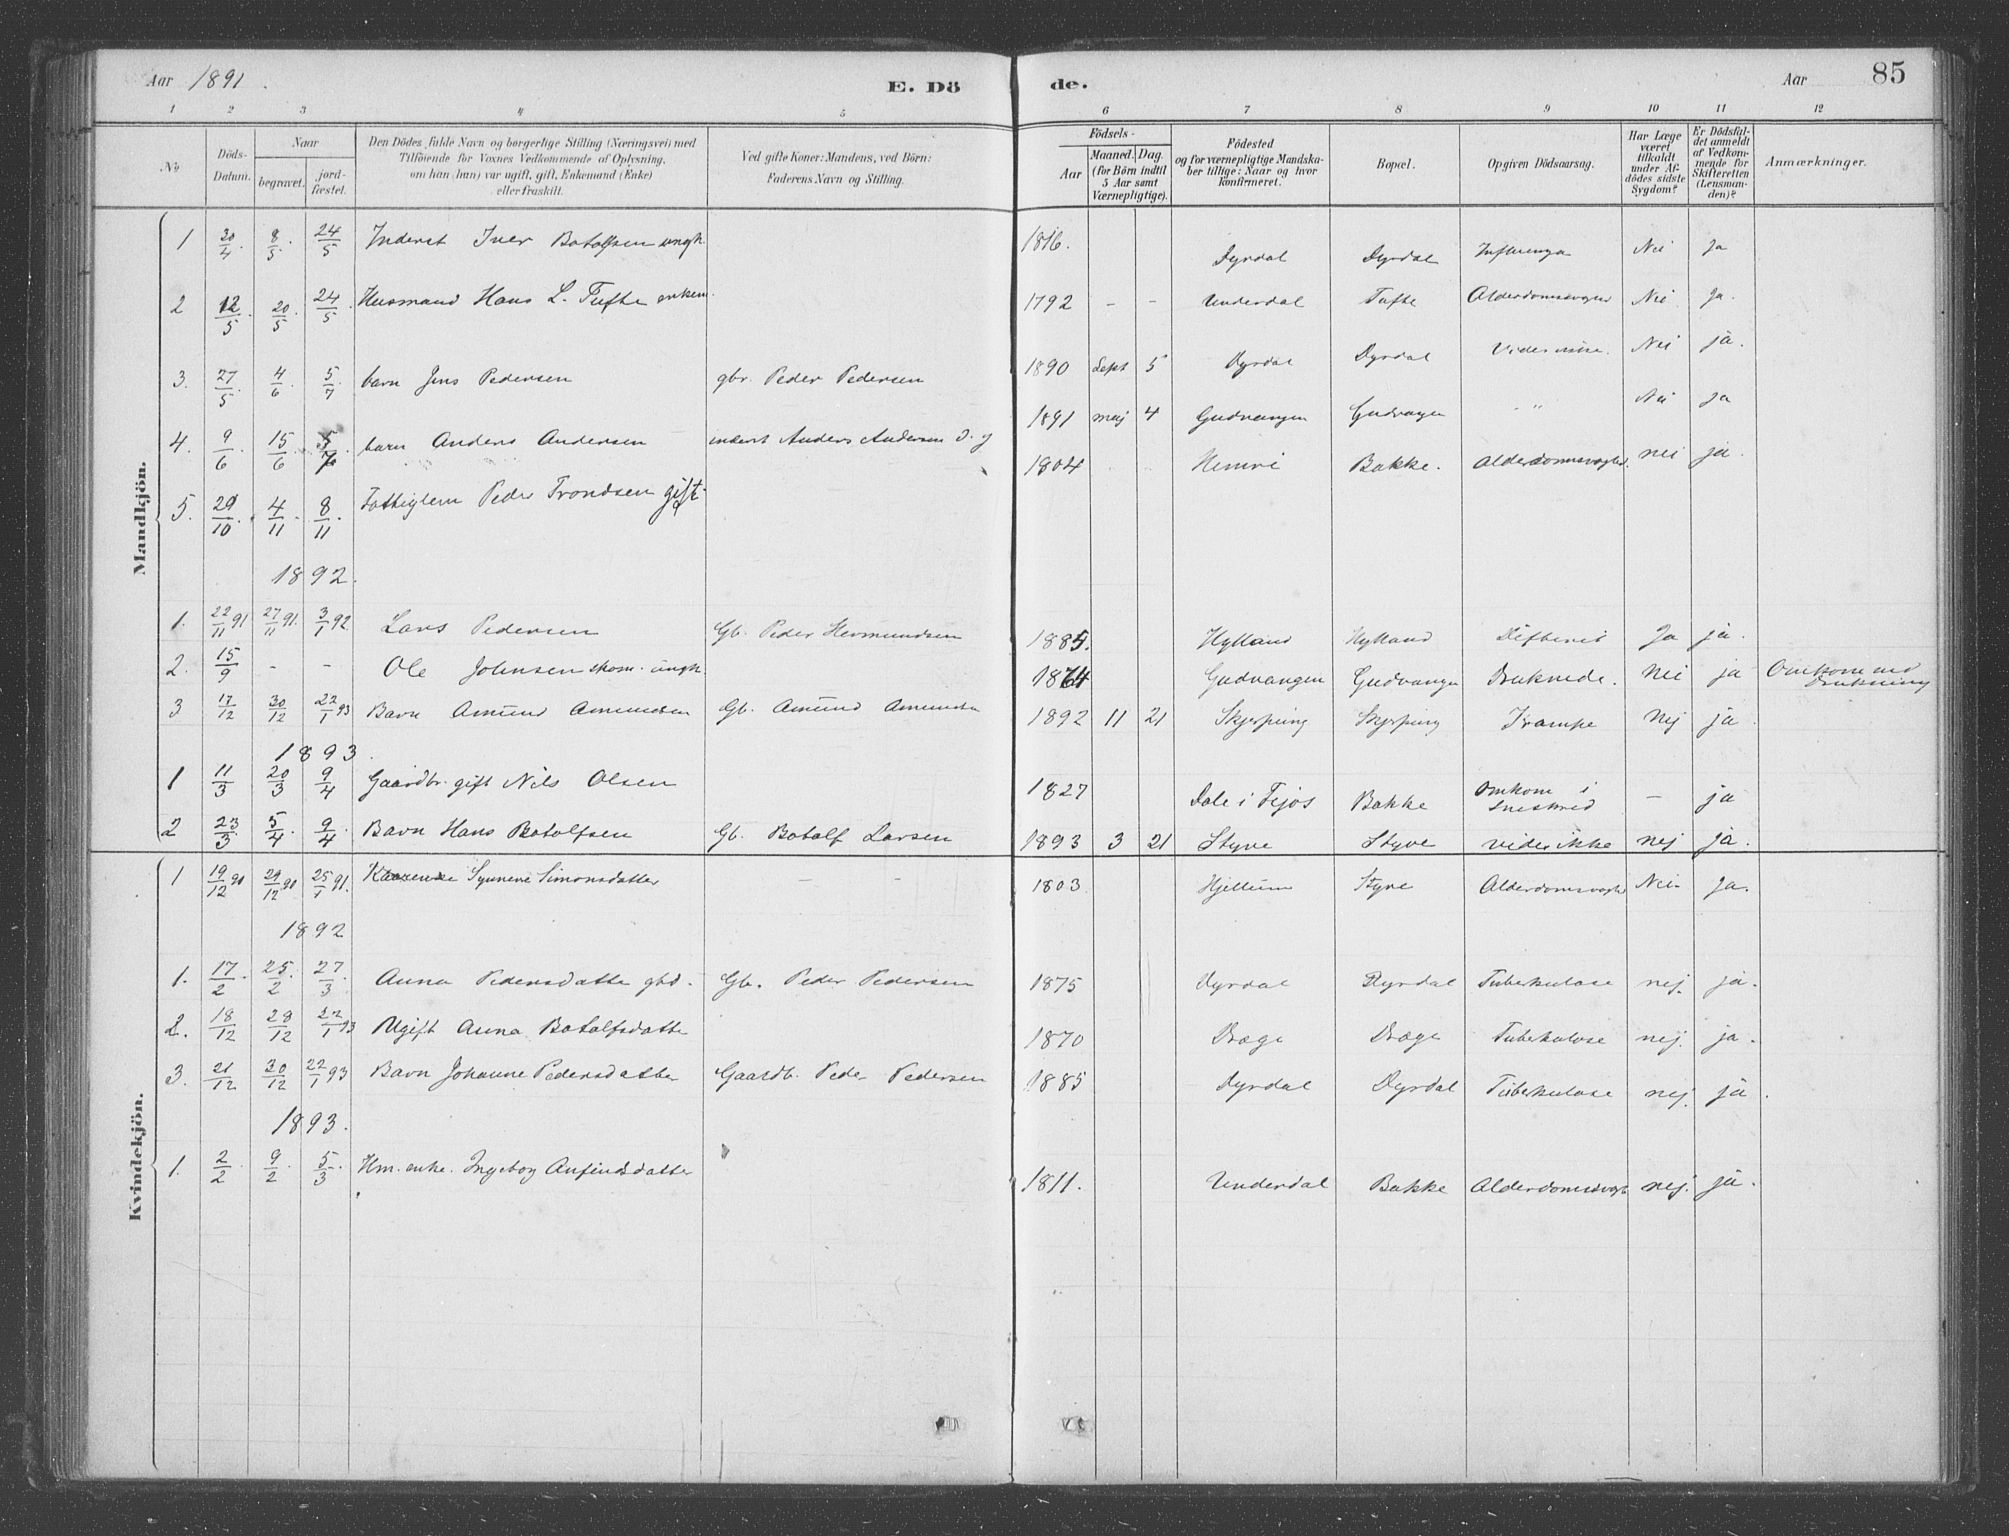 Aar 1891. E. Dö de. Aar 85
1 2 3 4 5 6 7 8 9 10 11 12
No
Döds-Datum.
Naar
begravet.
jord-fæstet.
Den Dödes fulde Navn og borgerlige Stilling (Næringsvei) med
Tilföiende for Voxnes Vedkommende af Oplysning,
om han (hun) var ugift, gift, Enkemand (Enke)
eller fraskilt.
Ved gifte Koner: Mandens, ved Börn:
Faderens Navn og Stilling.
Födsels-
Aar
Maaned. Dag.
(for Börn indtil
5 Aar samt
Værnepligtige).
Födested
og for værnepligtige Mandska-
ber tillige: Naar og hvor
konfirmeret.
Bopæl.
Opgiven Dödsaarsag.
Har Læge
været
tilkaldt
under Af-
dödes sidste
Sygdom?
Er Dödsfal-
det anmeldt
af Vedkom-
mende for
Skifteretten
(Lensman-
den)?
Anmærkninger.
Mandkjön.
1 30/4 8/5 24/5 Inderst Iver Botolfsen ungk. 1816. Dyrdal Dyrdal Influenza Nei Ja
2 12/5 20/5 24/5 Husmand Hans L. Tufte enkem. 1792 - - Underdal Tufte Alderdomssvaghed Nei Ja.
3. 27/5 4/6 5/7 barn Jens Pedersen gbr. Peder Pedersen 1890 Sept 5 Dyrdal Dyrdal Vides ikke. Nei ja.
4. 9/6 15/6 5/7 barn Anders Andersen inderst Anders Andersen 1891 maj 4 Gudvangen Gudvangen " Nei Ja
5. 29/10 4/11 8/11 Fattiglem Peder Trondsen gift 1804 Bakke. Alderdomssvaghed. nei ja.
1892.
1. 22/11 91 27/11 91. 3/1 92 Lars Pedersen Gb. Peder Hermundsen 1885. Hylland Hylland Difterit Ja ja.
2. 15/9 - - Ole Johnsen skom. ungk. 1864 Gudvangen Gudvangen Druknede. Nei ja Omkom ved
Drukning
3 17/12 30/12 22/1 93 Barn Amund Amundsen Gb. Amund Amundsen 1892 11 21 Skjerping Skjerping Krampe Nej ja.
1893.
1 11/3 20/3 9/4 Gaardbr. gift Nils Olsen 1827 Dale i Fejos Bakke Omkom i
Sneskred - ja
2 23/3 5/4 9/4 Barn Hans Botolfsen Gb. Botolf Larsen 1893 3 21 Styve Styve vides ikke nej ja.
Kvindekjön.
1 19/12 90 29/12 90 25/1 91. Synneve Simonsdatter - - 1803 Hjellum Styve Alderdomssvaghed Nei. Ja.
1892
1. 17/2 25/2 27/3 Anna Pedersdatter gbd. Gb. Peder Pedersen 1875 Dyrdal Dyrdal Tuberkulose nej. ja.
2. 18/12 29/12 22/1 93 Ugift Anna Botolfsdatter 1870 Dræge Drægo Tuberkulose nej. ja.
3. 21/12 30/12 22/1 93 Barn Johanne Pedersdatter Gaardb. Peder Pedersen 1885 Dyrdal Dyrdal Tuberkulose nej. ja.
1893.
1. 2/2 9/2 5/3 Hm. enke. Ingeborg Anfindsdatter 1811. Underdal Bakke Alderdomssvagh. nej. ja.